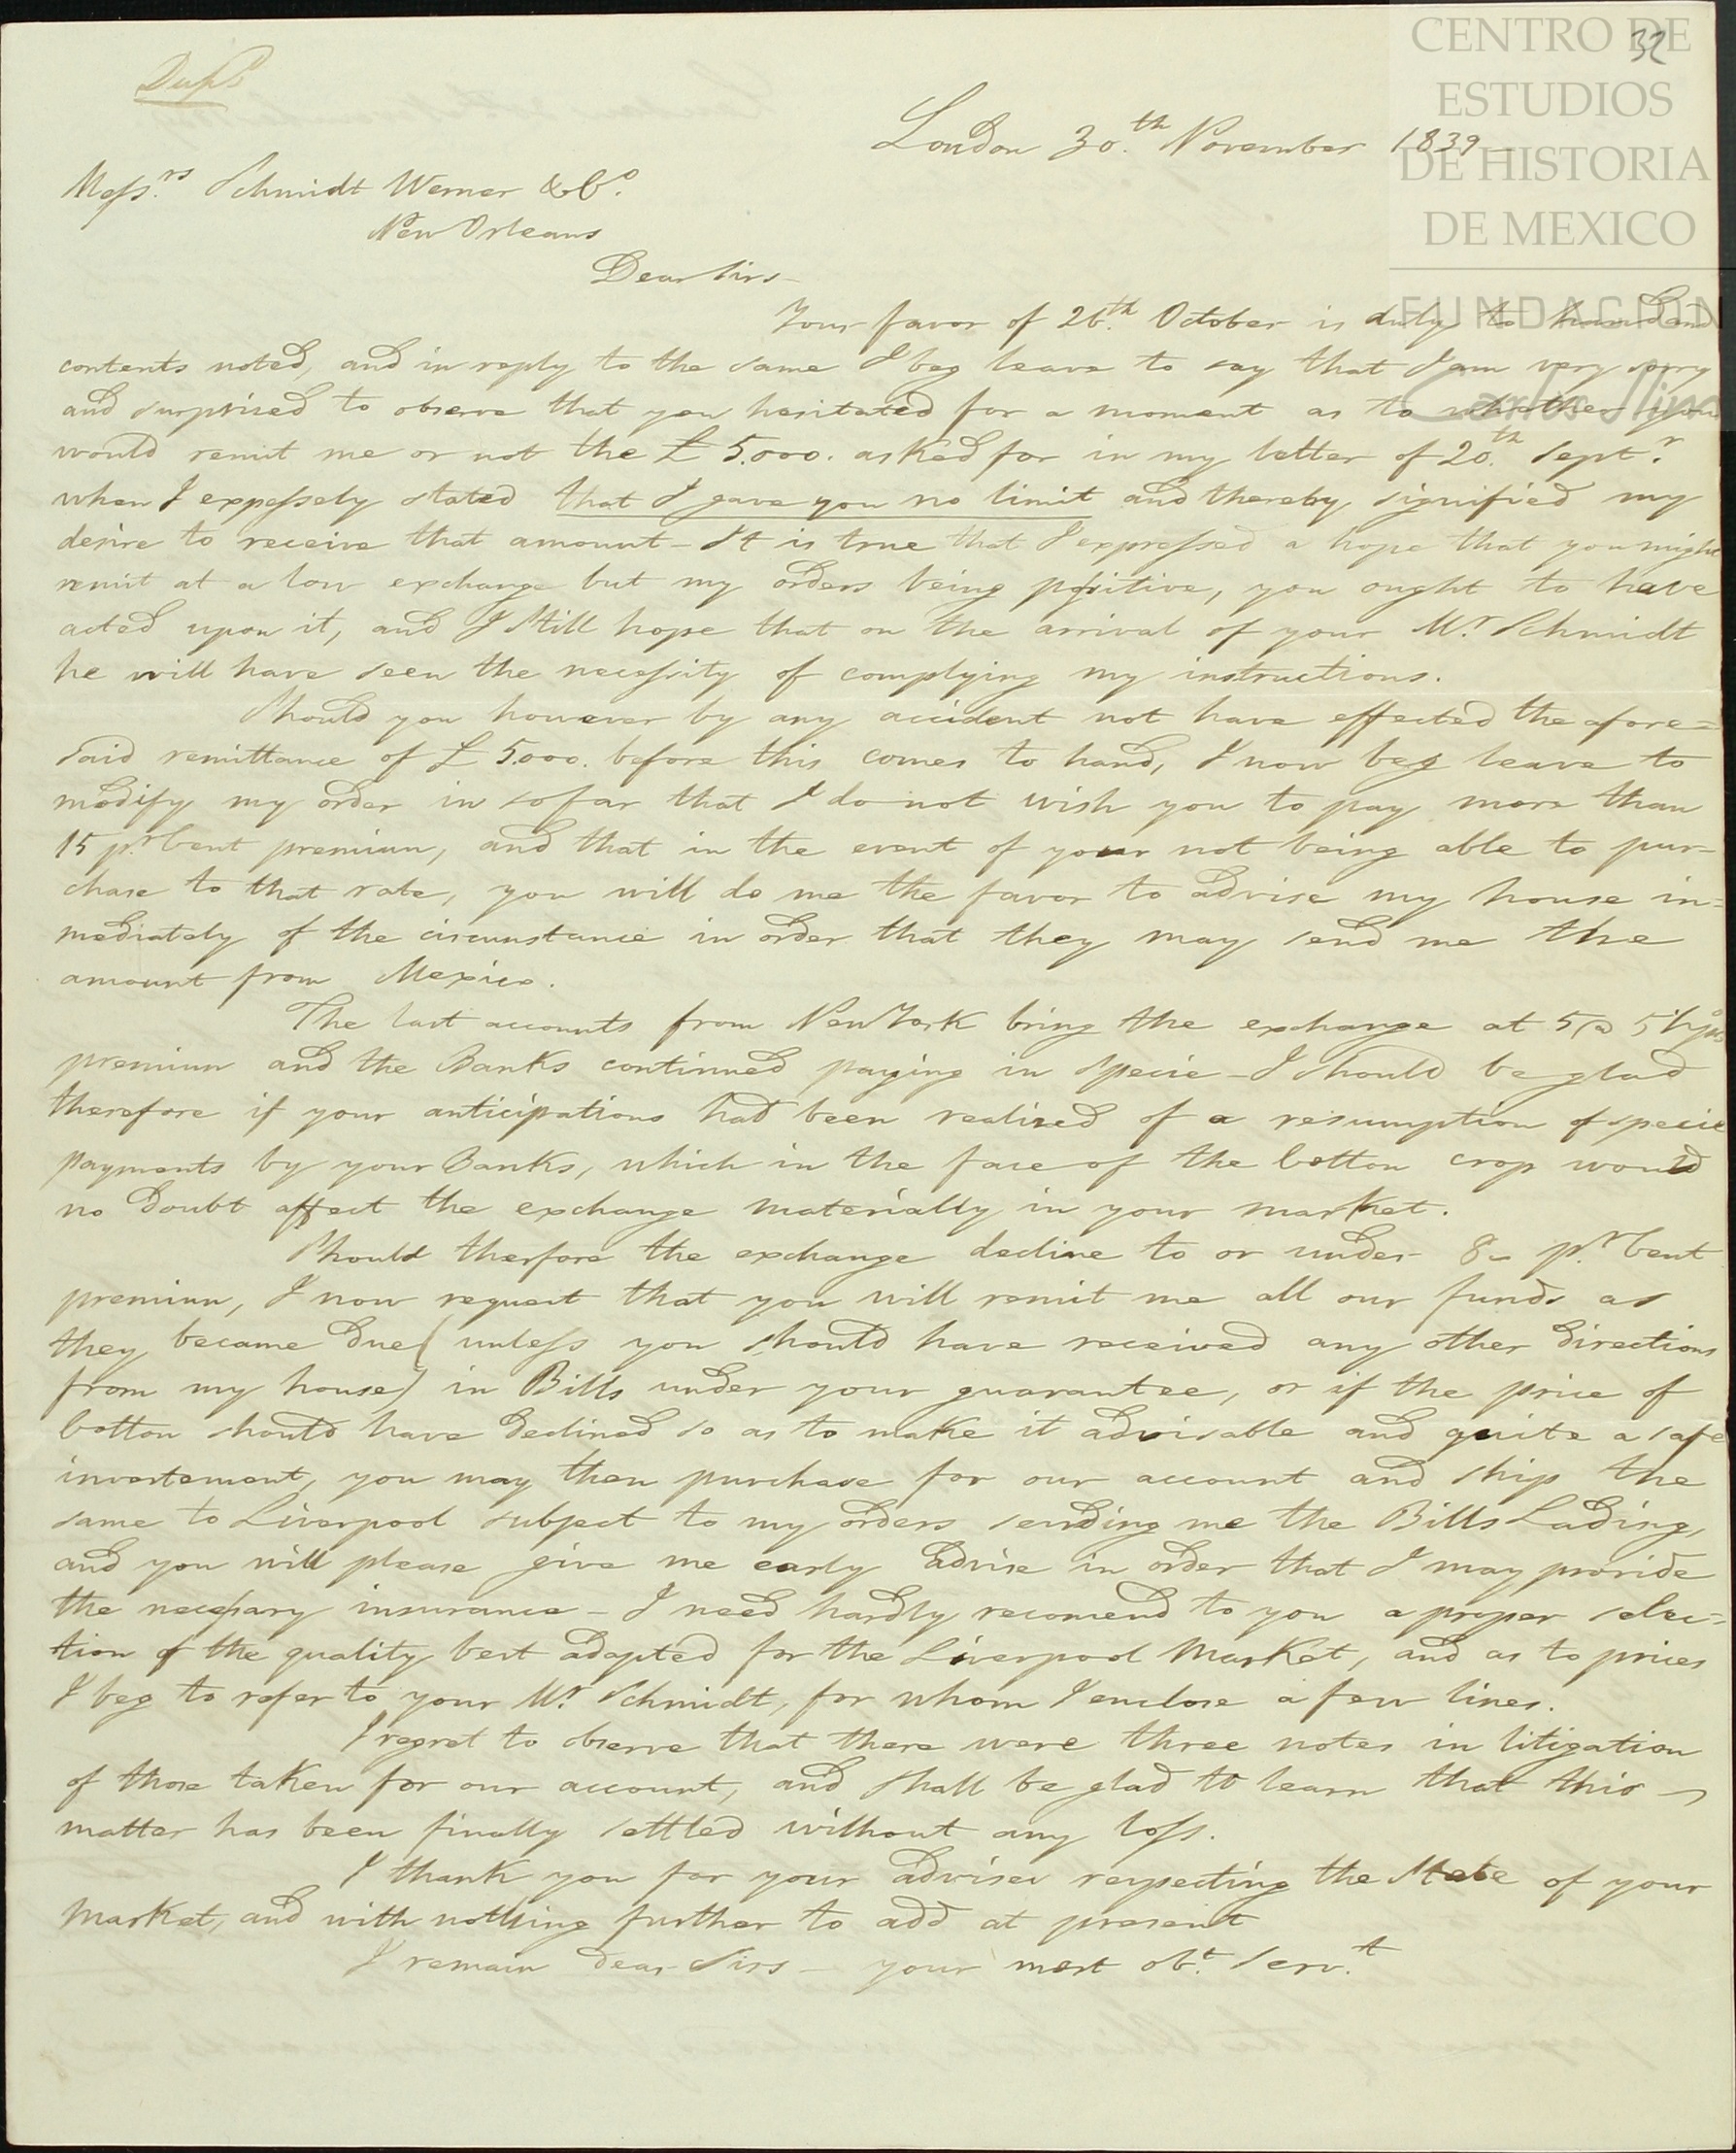 32
Dupte
London 30th November 1839
Messrs Schmidt Werner & Co.
New Orleans
Dear Sirs –
Your favor of 26th October is duly to hand and
contents noted, and in reply to the same I beg leave to say that I am very sorry
and surprised to observe that you hesitated for a moment as to whether you
would remit me or not the £ 5.000. asked for in my letter of 20th Septr
when I expressely stated that I gave you no limit and thereby signified my
desire to receive that amount – It is true that I expressed a hope that you might
remit at a low exchange but my orders being positive, you ought to have
acted upon it, and I still hope that on the arrival of your Mr Schmidt
he will have seen the necessity of complying my instructions.
Should you however by any accident not have effected the afore=
said remittance of £ 5.000. before this comes to hand, I now beg leave to
modify my order in so far that I do not wish you to pay more than
15 pr Cent premium, and that in the event of your not being able to pur-
chase to that rate, you will do me the favor to advise my house in=
mediately of the circumstance in order that they may send me the
amount from Mexico.
The last accounts from New York bring the exchange at 5 @ 5½
premium and the Banks continued paying in specie – I should be glad
therefore if your anticipations had been realised of a resumption of specie
payments by your Banks, which in the face of the Cotton crop would
no doubt affect the exchange materially in your market.
Should therfore the exchange decline to or under 8 – pr Cent
premium, I now request that you will remit me all our funds as
they became due (unless you should have received any other directions
from my house) in Bills under your guarantee, or if the price of
Cotton should have declined so as to make it advisable and quite a safe
investement, you may then purchase for our account and ship the
same to Liverpool subject to my orders sending me the Bills Lading,
and you will please give me early advise in order that I may provide
the necessary insurance – I need hardly recomend to you a proper selec=
tion of the quality best adapted for the Liverpool Market, and as to prices
I beg to refer to your Mr Schmidt, for whom I enclose a few lines.
I regret to observe that there were three notes in litigation
of those taken for our account, and shall be glad to learn that this –
matter has been finally settled without any loss.
I thank you for your advises respecting the State of your
Market, and with nothing further to add at present
I remain dear Sirs – your most obt Servt
CENTRO DE
ESTUDIOS
DE HISTORIA
DE MEXICO
FUNDACION
Carlos Slim